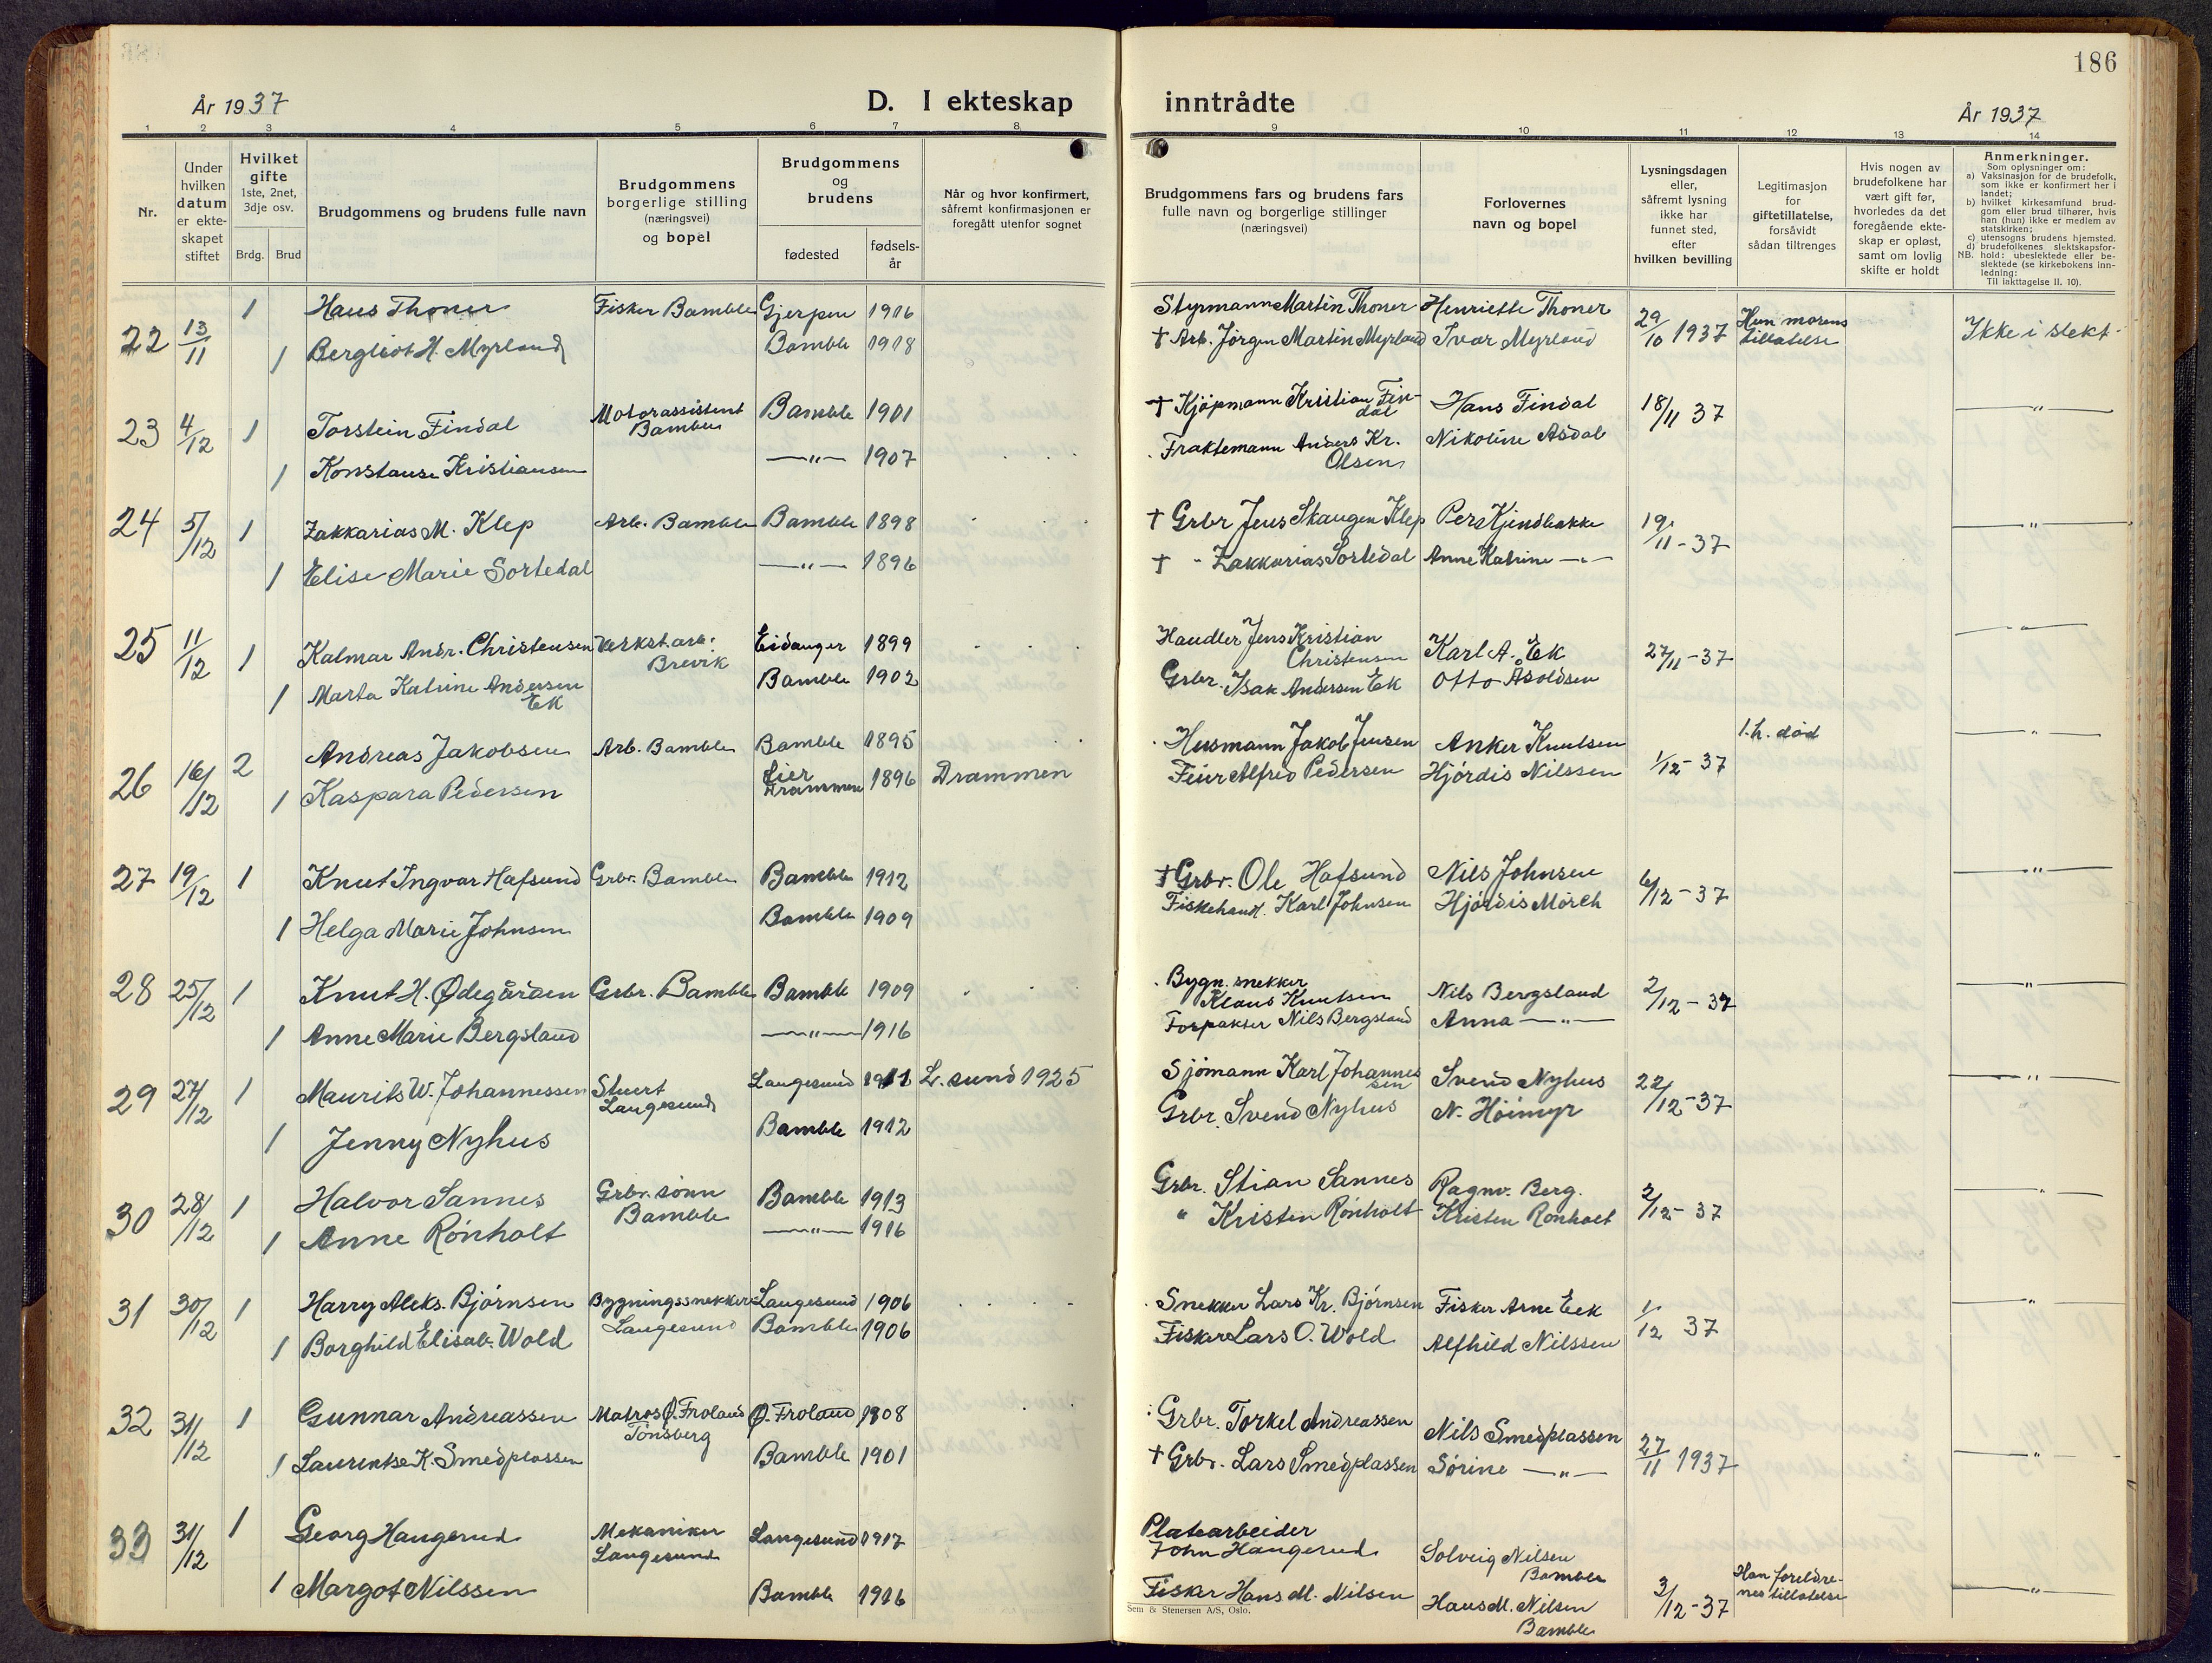 År 1937
D. I ekteskap
1 2 3 4 5 6 7 8
Nr.
Under hvilken datum er ekte-skapet stiftet
Hvilket gifte
1ste, 2net, 3dje osv.
Brdg. Brud
Brudgommens og brudens fulle navn
Brudgommens borgerlige stilling (næringsvei) og bopel
Brudgommens og brudens
fødested
fødsels-år
Når og hvor konfirmert, såfremt konfirmasjonen er foregått utenfor sognet
22 13/11 1 Hans Thoner Fisker Bamble Gjerpen 1906
1 Bergliot H. Myrland Bamble 1918
23 4/12 1 Torstein Findal Motorassistent Bamble Bamble 1901
1 Konstanse Kristiansen —"— 1907
24 5/12 1 Zakkarias M. Klep Arb. Bamble Bamble 1898
1 Elise Marie Sortedal —"— 1896
25 11/12 1 Kalmar Andr. Christensen Verkst.arb. Brevik Eidanger 1899
1 Marta Katrine Andersen Ek Bamble 1902
26 16/12 2 Andreas Jakobsen Arb. Bamble Bamble 1895
1 Kaspara Pedersen Lier Drammen 1896 Drammen
27 19/12 1 Knut Ingvar Hafsund Grbr. Bamble Bamble 1912
1 Helga Marie Johnsen Bamble 1909
28 25/12 1 Knut H. Ødegården Grbr. Bamble Bamble 1909
1 Anne Marie Bergsland —"— 1916
29 27/12 1 Maurits W. Johannessen Stuert Langesund Langesund 1911 L.sund 1925
1 Jenny Nyhus Bamble 1912
30 28/12 1 Halvor Sannes Grbr.sønn Bamble Bamble 1913
1 Anne Rønholt —"— 1916
31 30/12 1 Harry Aleks. Bjørnsen Bygningssnekker Langesund Langesund 1906
1 Borghild Elisab. Wold Bamble 1906
32 31/12 1 Gunnar Andreassen Matros Ø. Froland Tønsberg Ø. Froland 1908
1 Laurentse K. Smedplassen Bamble 1901
33 31/12 1 Georg Haugerud Mekaniker Langesund Langesund 1917
1 Margot Nilssen Bamble 1916
186
inntrådte
År 1937
9 10 11 12 13 14
Brudgommens fars og brudens fars fulle navn og borgerlige stillinger (næringsvei)
Forlovernes navn og bopel
Lysningsdagen eller, såfremt lysning ikke har funnet sted, efter hvilken bevilling
Legitimasjon for giftetillatelse, forsåvidt sådan tiltrenges
Hvis nogen av brudefolkene har vært gift før, hvorledes da det foregående ekte-skap er opløst, samt om lovlig skifte er holdt
Anmerkninger.
Som oplysninger om:
a) Vaksinasjon for de brudefolk, som ikke er konfirmert her i landet;
b) hvilket kirkesamfund brud-gom eller brud tilhører, hvis han (hun) ikke er medlem av statskirken;
c) utensogns brudens hjemsted.
d) brudefolkenes slektskapsfor-hold: ubeslektede eller be-slektede (se kirkebokens inn-ledning:
NB.
Til iakttagelse II. 10).
Styrmann Martin Thoner Henriette Thoner 29/10 1937 Hun morens tillatelse Ikke i slekt
† Arb. Jørgen Martin Myrland Ivar Myrland
† Kjøpmann Kristian Fin-dal Hans Findal 18/11 37 —"—
Fraktemann Anders Kr. Olsen Nikoline Asdal
† Grbr Jens Skaugen Klep Pers Kjendbakke 19/11-37 —"—
† " Zakkarias Sortedal Anne Katrine —"—
Handler Jens Kristian Christensen Karl A. Ek 27/11-37 —"—
Grbr. Isak Andersen Ek Otto Åsoldsen
Husmann Jakob Jensen Anker Knutsen 1/12-37 1.h. død —"—
Feier Alfred Pedersen Hjördis Nilssen
† Grbr. Ole Hafsund Nils Johnsen 6/12-37 —"—
Fiskehand. Karl Johnsen Hjördis Mörch
Bygn. snekker Klaus Knutsen Nils Bergsland 2/12-37 —"—
Forpakter Nils Bergsland Anna —"—
Sjömann Karl Johannes sen Svend Nyhus 22/12-37 —"—
Grbr. Svend Nyhus N. Höimyr
Grbr. Stian Sannes Ragnv. Berg. 2/12-37 —"—
" Kristen Rönholt Kristen Rönholt
Snekker Lars Kr. Bjørnsen Fisker Arne Eek 1/12 37 —"—
Fisker Lars O. Wold Alfhild Nilssen
Grbr. Torkel Andreassen Nils Smedplassen 27/11 1937 —"—
† Grbr. Lars Smedplassen Sörine —"—
Platearbeider John Haugerud Solveig Nilsen Bamble 3/12-37 Han foreldre-nes tillatelse —"—
Fisker Hans M. Nilsen Hans M. Nilsen Bamble
Sem & Stenersen A/S, Oslo.